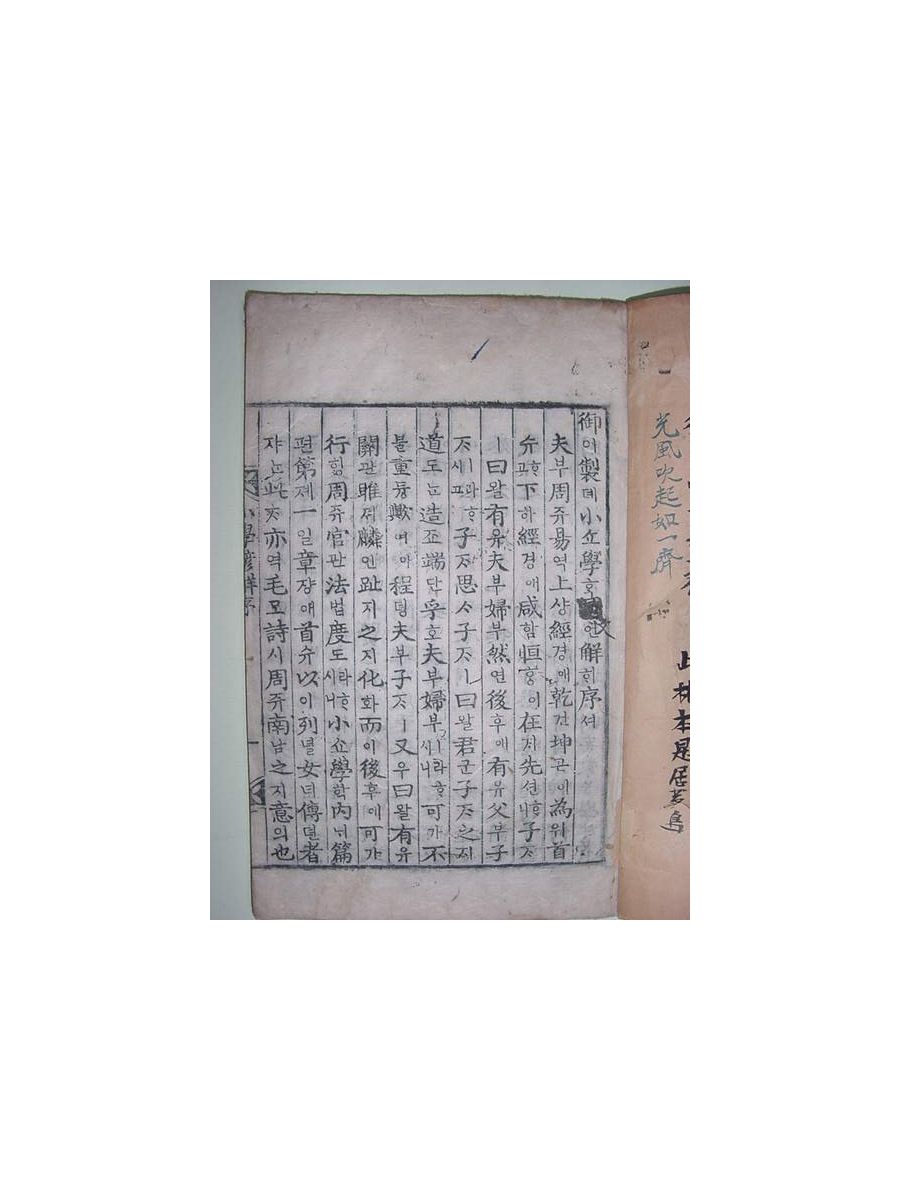 光風吹起如一齊
林本是居
御어製졔小쇼學ᄒᆞᆨ언解ᄒᆡ序셔
夫부周쥬易역上샹經경애乾건坤곤이爲위首
슈ᄒᆞ고下하經경애咸함恒ᄒᆞᆼ이在ᄌᆡ先션ᄒᆞ니子ᄌᆞ
ㅣ曰왈有유夫부婦부然연後후에有유父부子
ᄌᆞㅣ라ᄒᆞ시고子ᄌᆞ思ᄉᆞ子ᄌᆞㅣ曰왈君군子ᄌᆞ之지
道도ᄂᆞᆫ造조端단乎호夫부婦부ㅣ라ᄒᆞ시니可가不
블重듕歟여아程뎡夫부子ᄌᆞㅣ又우曰왈有유
關관雎져麟인趾지之지化화而이後후에可가
行ᄒᆡᆼ周쥬官관法법度도ㅣ라ᄒᆞ시니小쇼學ᄒᆞᆨ內ᄂᆡ篇
편第뎨一일章쟝애首슈以이列녈女녀傳뎐者
쟈ᄂᆞᆫ此ᄎᆞㅣ亦역毛모詩시周쥬南남之지意의也
小學諺解序